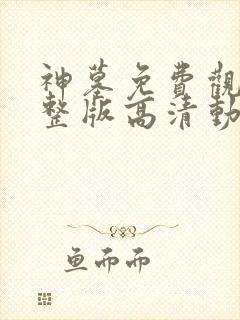 神墓免費觀
整版高清動
鱼而而